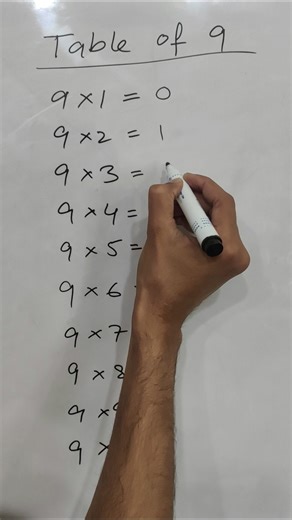 Table of 9
9 × 1 = 0
9 × 2 = 1
9 × 3 =
9 × 4 =
9 × 5 =
9 × 6
9 × 7
9 × 8
9 × 9
9 ×